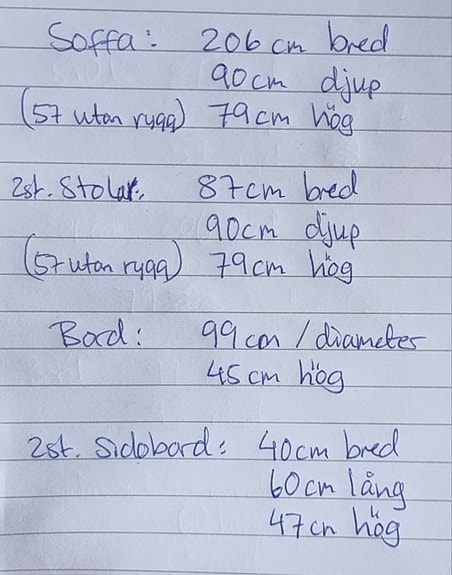 Soffa: 206 cm bred
90cm djup
(57 utan rygg) 79cm hög
2st. Stolar. 87cm bred
90cm djup
(57 utan rygg) 79cm hög
Bord: 99cm / diameter
45cm hög
2st. Sidobord: 40cm bred
60cm lång
47cm hög